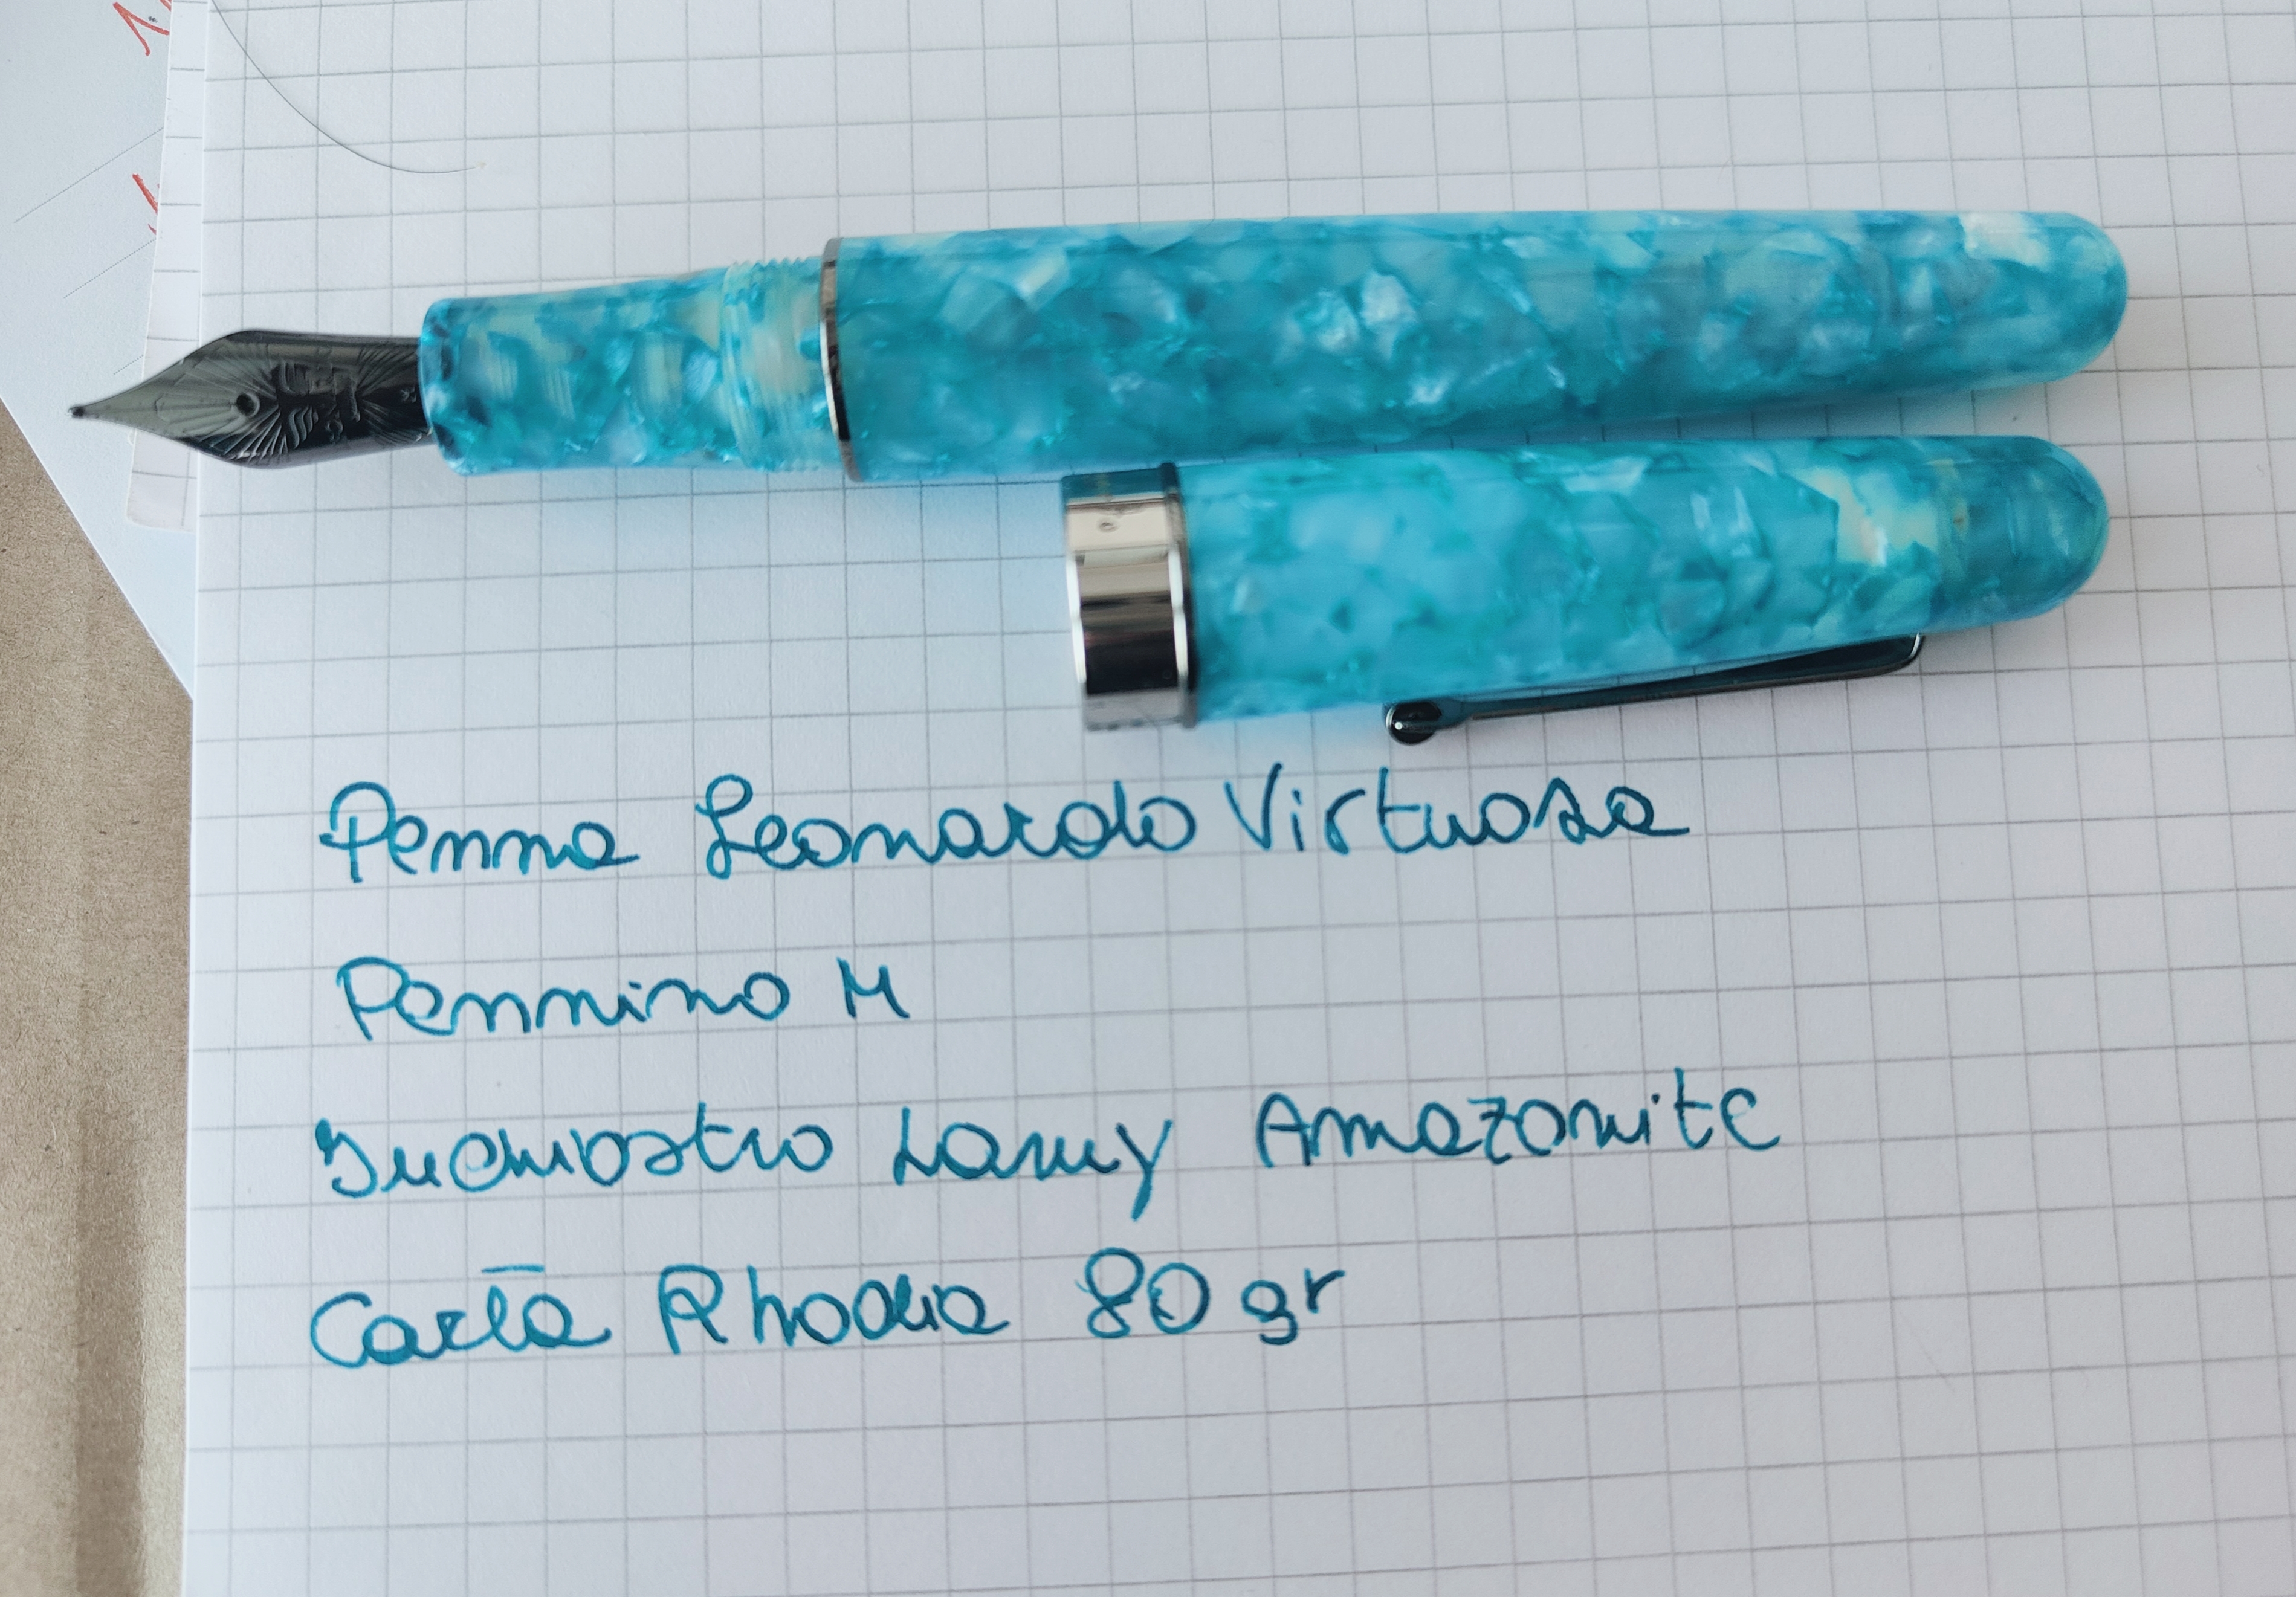 Penna Leonardo Virtuosa
Pennino M
Inchiostro Lamy Amazonite
Carta Rhodia 80 gr